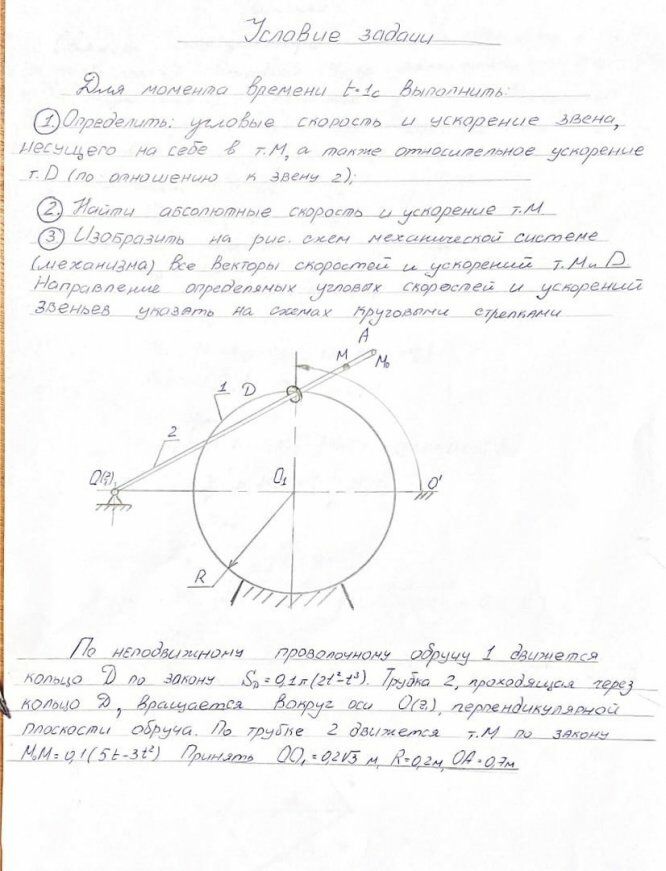 Условие задачи
Для момента времени t=1с выполнить:
1. Определить: угловые скорость и ускорение звена,
несущего на себе в т.М, а также относительное ускорение
т.D (по отношению к звену 2);
2. Найти абсолютные скорость и ускорение т.М
3 Изобразить на рис. схем механической системе
(механизма) все векторы скоростей и ускорений т.М и D
Направление определямых угловых скоростей и ускорений
звеньев указать на схемах круговыми стрелками
A
M M₀
1 D
2
O(z₁) O₁ O'
R
По неподвижному проволочному обручу 1 движется
кольцо D по закону S_D=0,1π(2t²-t³). Трубка 2, проходящая через
кольцо D, вращается вокруг оси O(z₁), перпендикулярной
плоскости обруча. По трубке 2 движется т.М по закону
M₀M=0,1(5t-3t²) Принять OO₁=0,2√3 м, R=0,2м, OA=0,7м